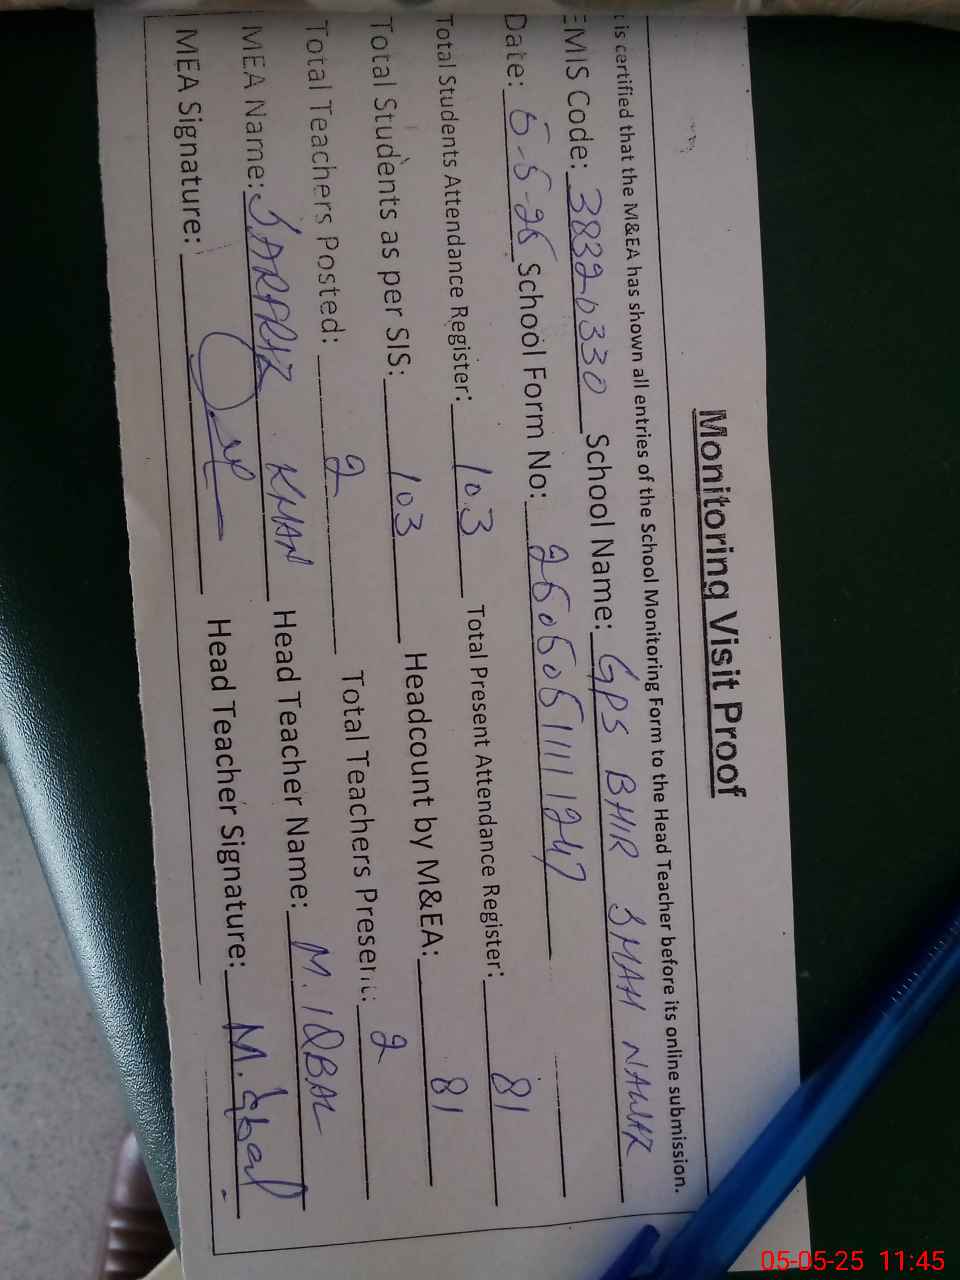 Monitoring Visit Proof
t is certified that the M&EA has shown all entries of the School Monitoring Form to the Head Teacher before its online submission.
EMIS Code: 38320330 School Name: GPS BHIR SHAH NAWAZ
Date: 5-5-25 School Form No: 250505111247
Total Students Attendance Register: 103 Total Present Attendance Register: 81
Total Students as per SIS: 103 Headcount by M&EA: 81
Total Teachers Posted: 2 Total Teachers Present: 2
MEA Name: KHAN Head Teacher Name: M. IQBAL
MEA Signature: Head Teacher Signature: M. Iqbal
05-05-25 11:45